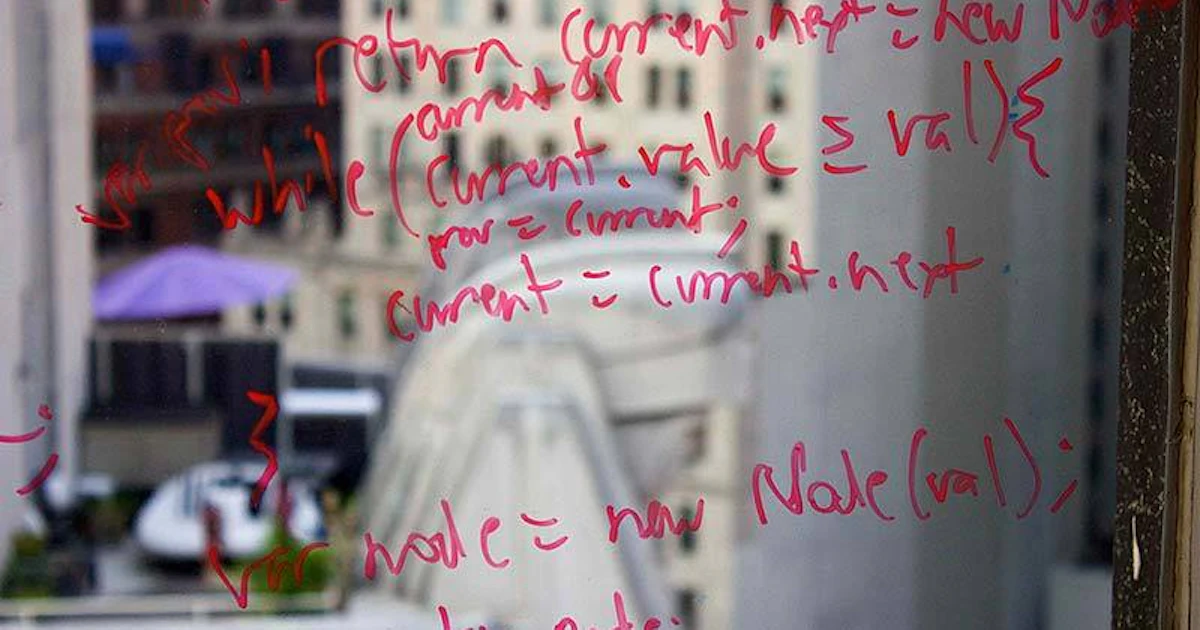 return current.next = new Node
current &&
while (current.value ≥ val) {
prev = current;
current = current.next
}
var node = new Node(val);